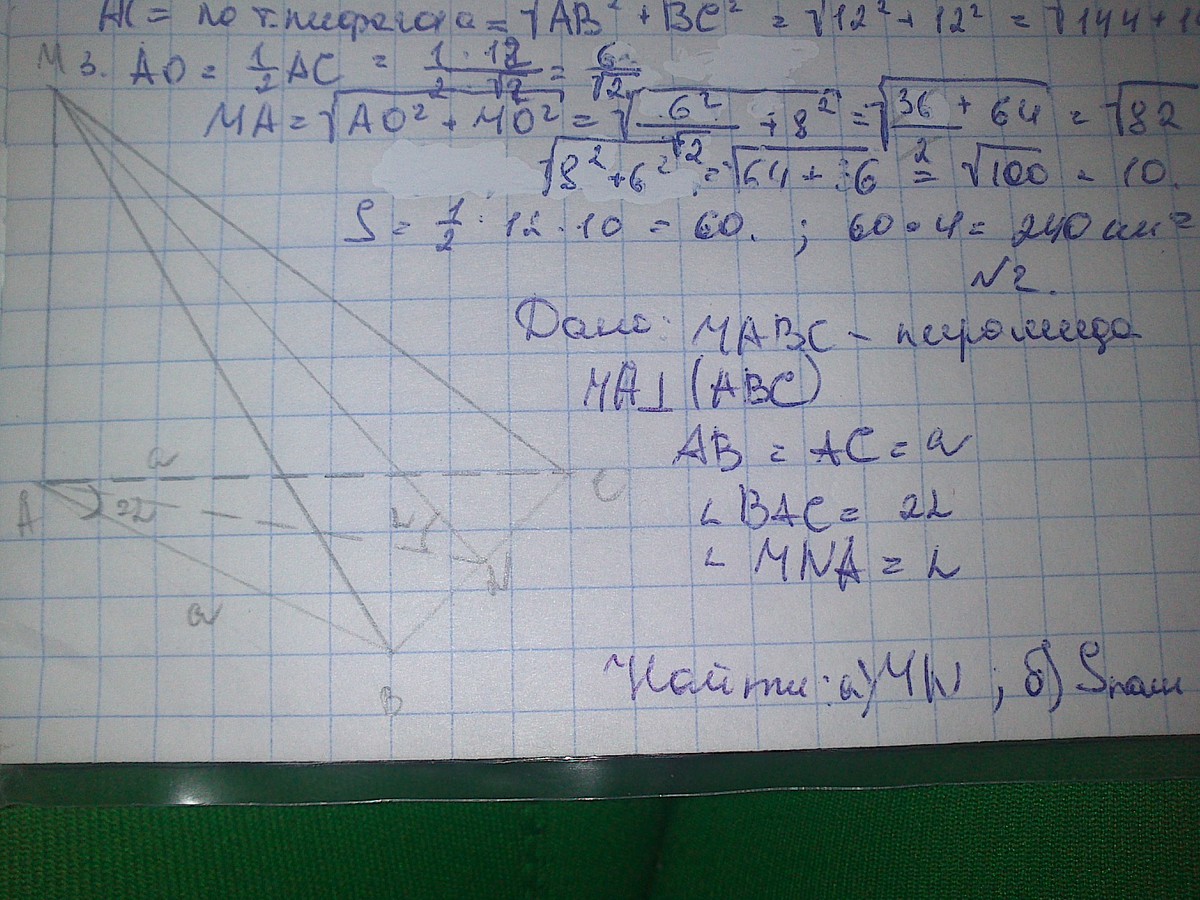 AC = по т.пифагора = √AB² + BC² = √12² + 12² = √144 + 1
3. AO = 1/2 AC = 1 · 12 / 2 · √2 = 6/√2
MA = √AO² + MO² = √6²/√2 + 8² = √36/2 + 64 = √82
√8² + 6² = √64 + 36 = √100 = 10.
S = 1/2 · 12 · 10 = 60. ; 60 · 4 = 240 см²
№2.
Дано: MABC – пирамида
MA⊥(ABC)
AB = AC = a
∠BAC = 2L
∠MNA = L
Найти: а) MN ; б) Sполн
M
a
A
=2L
L
C
N
a
B